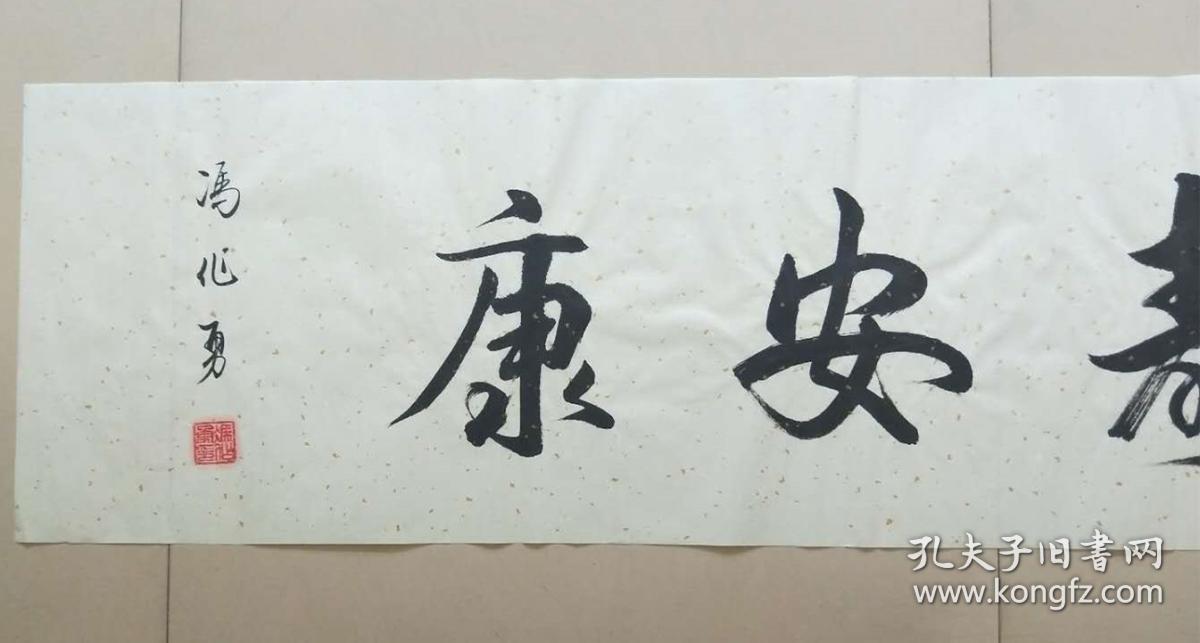 安康
冯作勇
孔夫子旧書网
www.kongfz.com